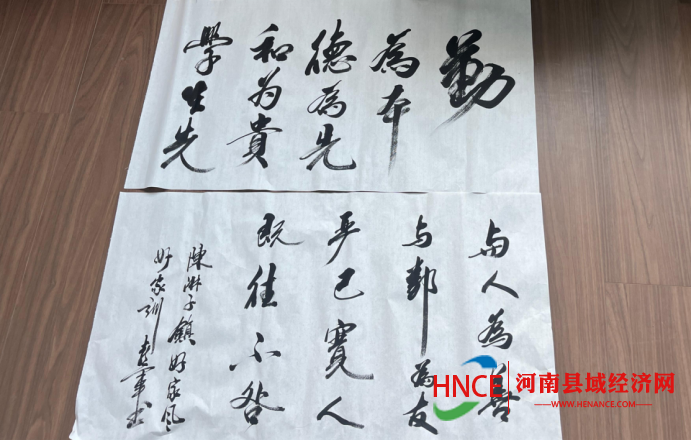 勤
為本
德為先
和为貴
學生先
与人為善
与鄰為友
严己寬人
既往不咎
陳淋子鎮好家风
好家训
HNCE 河南县域经济网
WWW.HENANCE.COM